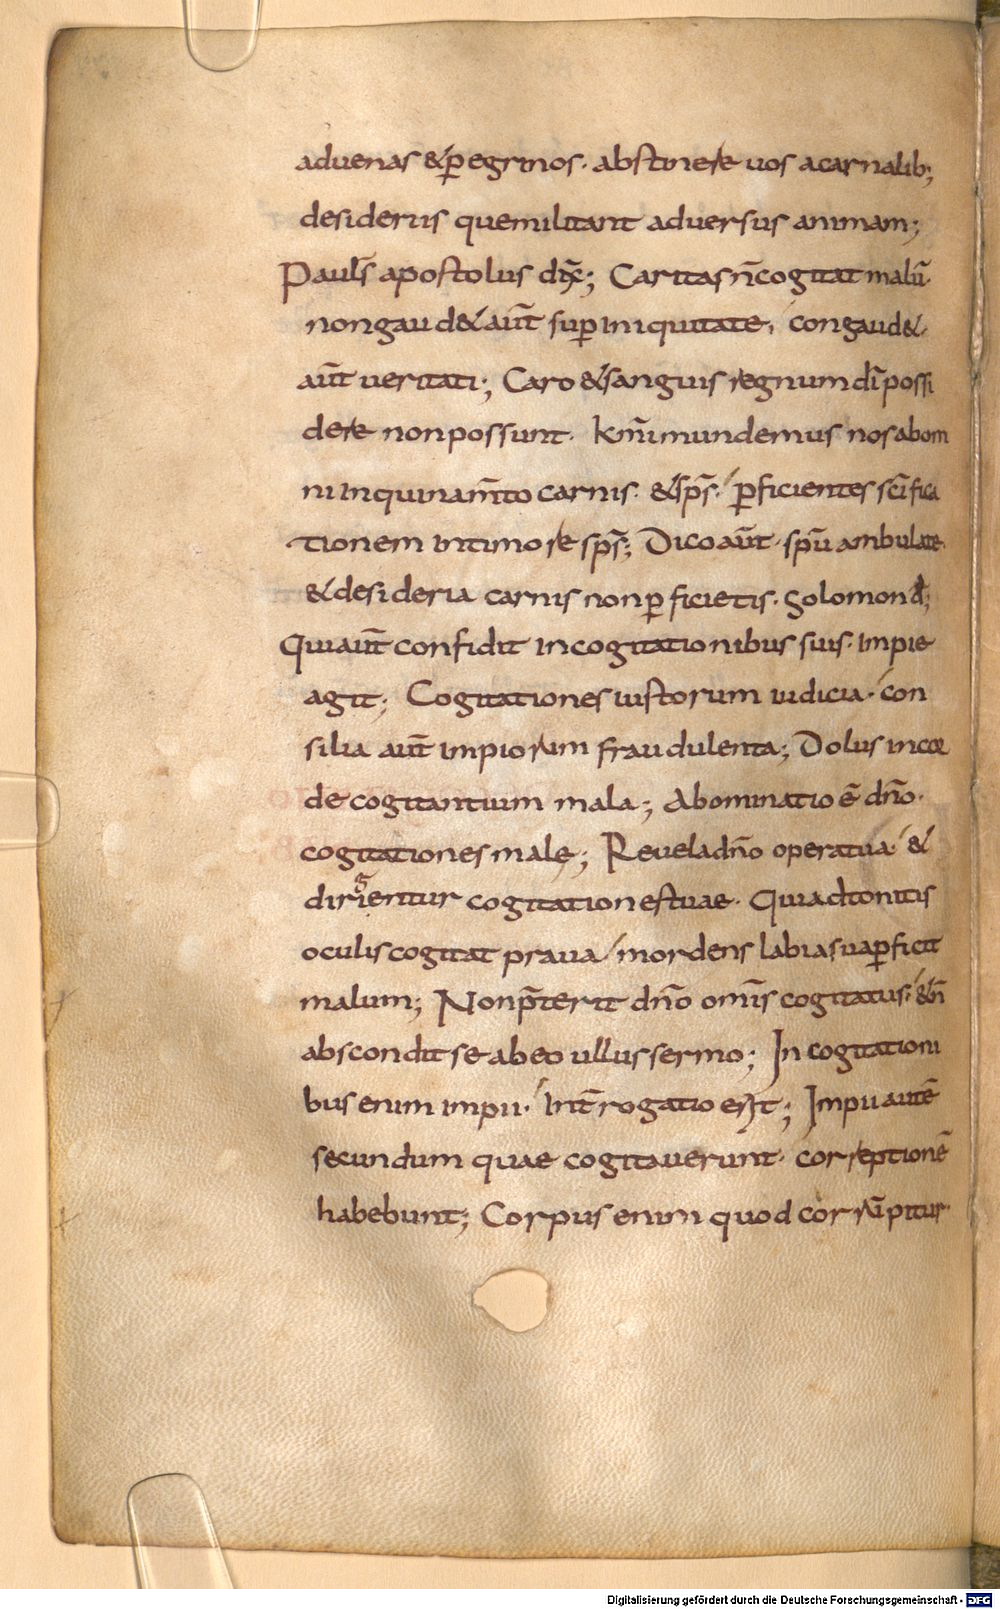 aduenas & p̄egrinos· abstinete uos acarnalib;
desideriis quemilitant aduersus animam;
Paul̄s apostolus dix̄; Caritas n̄cogitat malū·
nongaud& aūt sup̄ iniquitate, congaud&·
aūt ueritati; Caro &sanguis regnum dī possi
dere nonpossunt· Km̄i mundemus nosabom
ni inquinam̄to carnis· &sp̄s· p̄ficientes sc̄ifica
tionem intimore sp̄s; Dicoaūt· spū ambulate·
& desideria carnis nonp̄ficietis· Solomon d̄;
Quiaūt confidit incogitationibus suis· impie
agit; Cogitationes iustorum iudicia· con
silia aūt impiorum fraudulenta; Dolus incor
de cogitantium mala; Abominatio ē dn̄o·
cogitationes male; Reueladn̄o operatua &
dirigentur cogitationestuae· Quiadtonitis
oculis cogitat praua mordens labiasuap̄ficit
malum; Nonp̄terit dn̄o omīs cogitatus· &n̄
abscondit se abeo ullus sermo; In cogitationi
bus enim impii· int̄rogatio est; Impii autē
secundum quae cogitauerunt· correptionē
habebunt; Corpus enim quod corrūpitur·
Digitalisierung gefördert durch die Deutsche Forschungsgemeinschaft - DFG